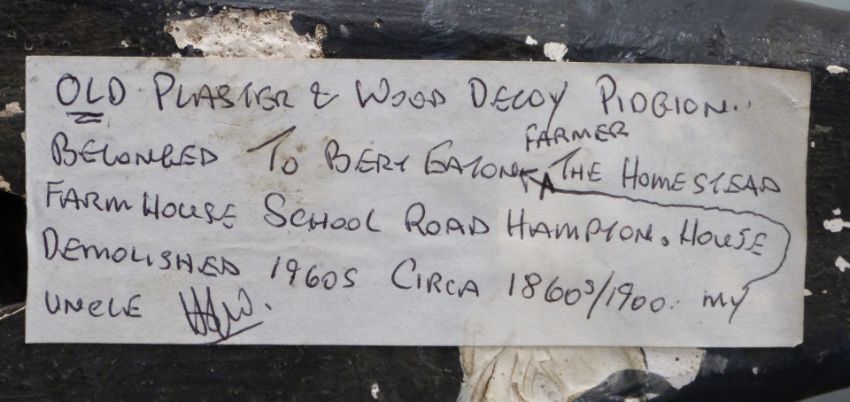 OLD PLASTER & WOOD DECOY PIDGION..
FARMER
BELONGED TO BERT EATON THE HOMESTEAD
FARM HOUSE SCHOOL ROAD HAMPTON. HOUSE
DEMOLISHED 1960S CIRCA 1860s/1900. MY
UNCLE